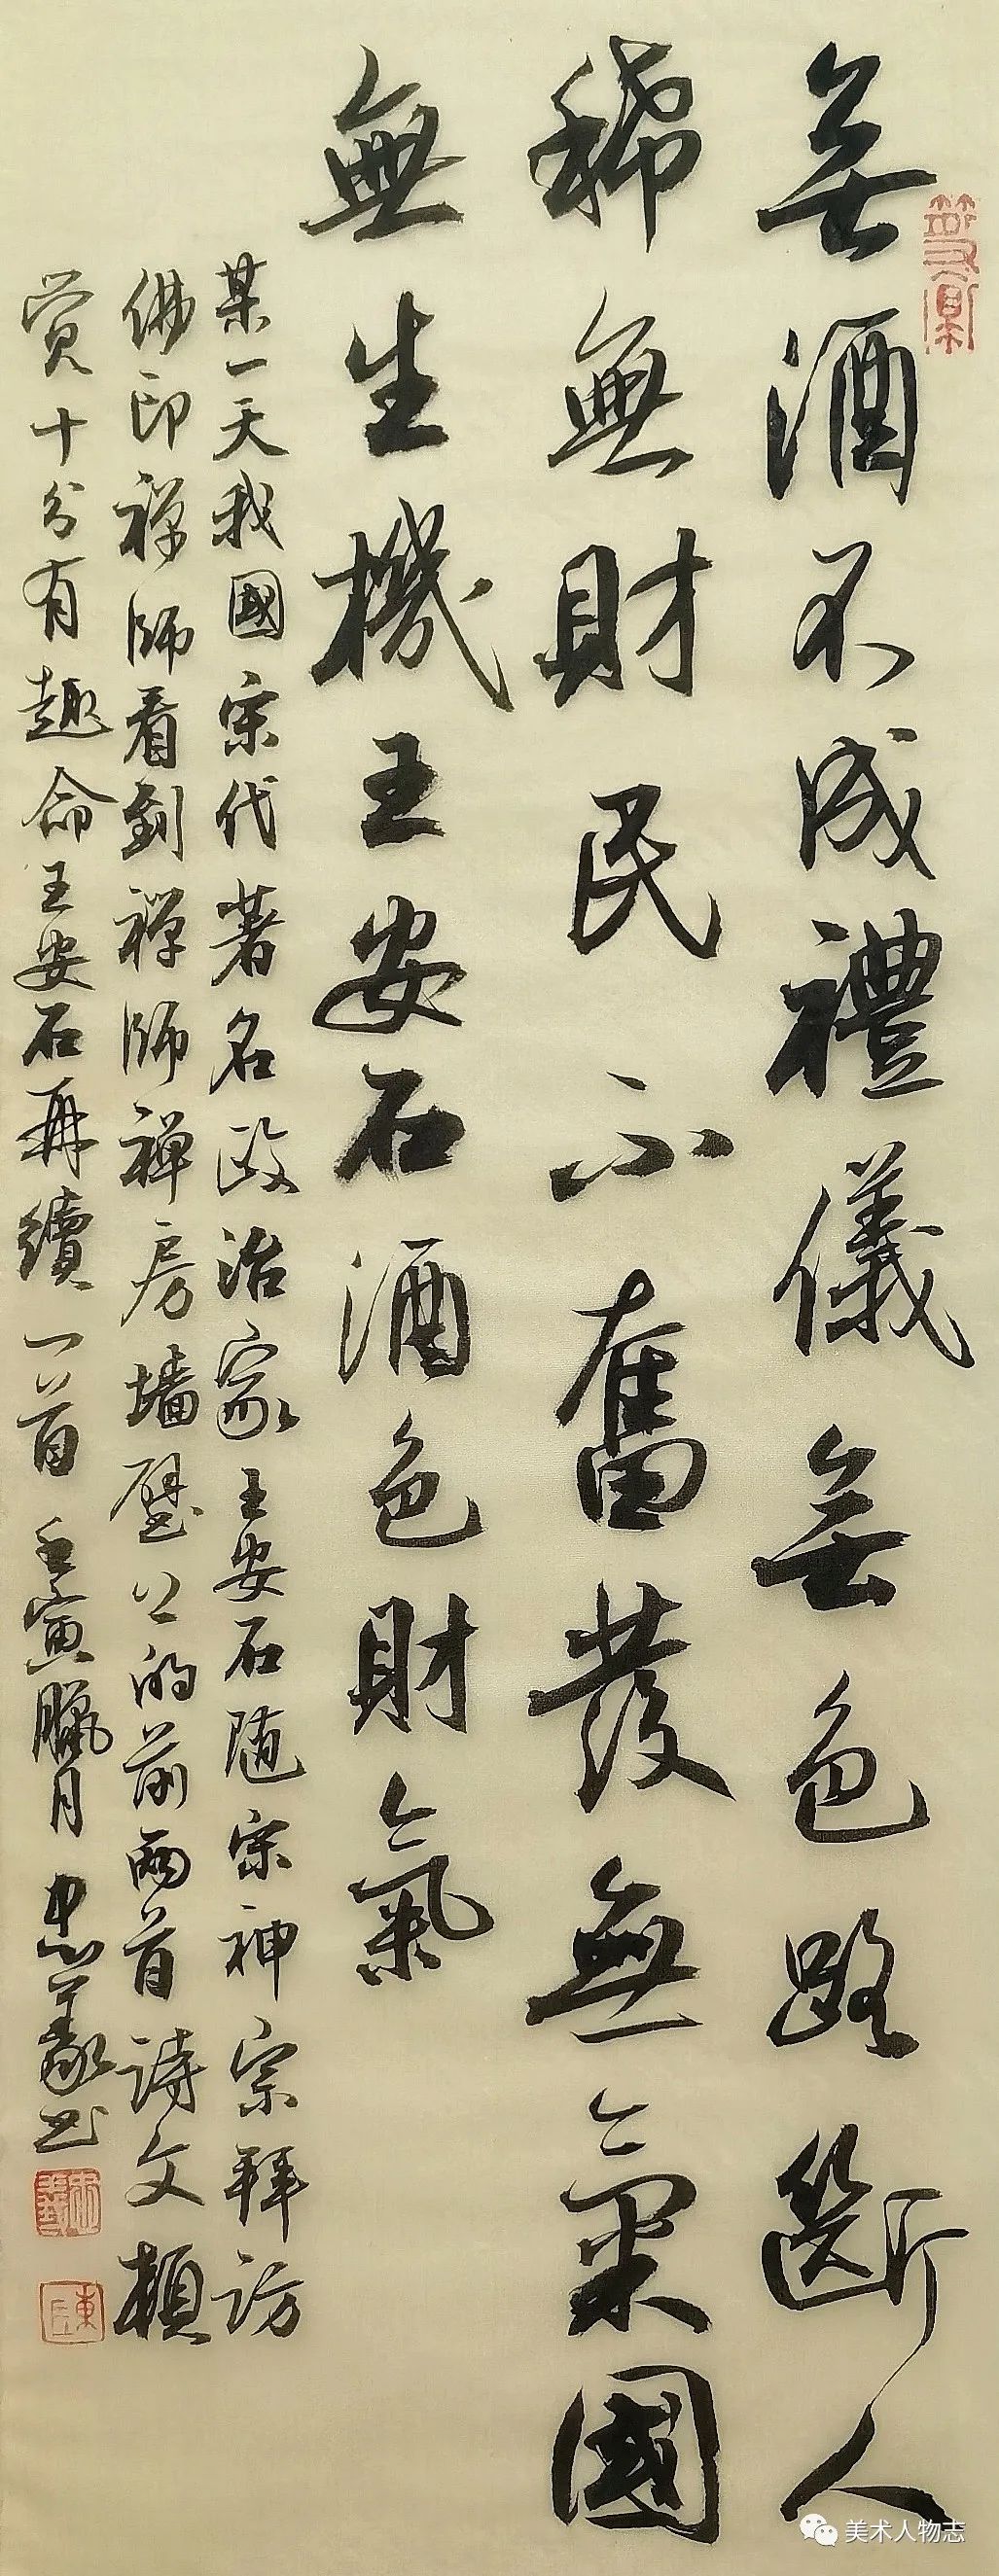 无酒不成禮儀无色路斷人
稀無財民不奮發無氣國
無生機王安石酒色財氣
某一天我國宋代著名政治家王安石随宋神宗拜访
佛印禅師看到禅師禅房墙壁上的前兩首诗文頓
觉十分有趣命王安石再續一首壬寅臘月忠義书
美术人物志